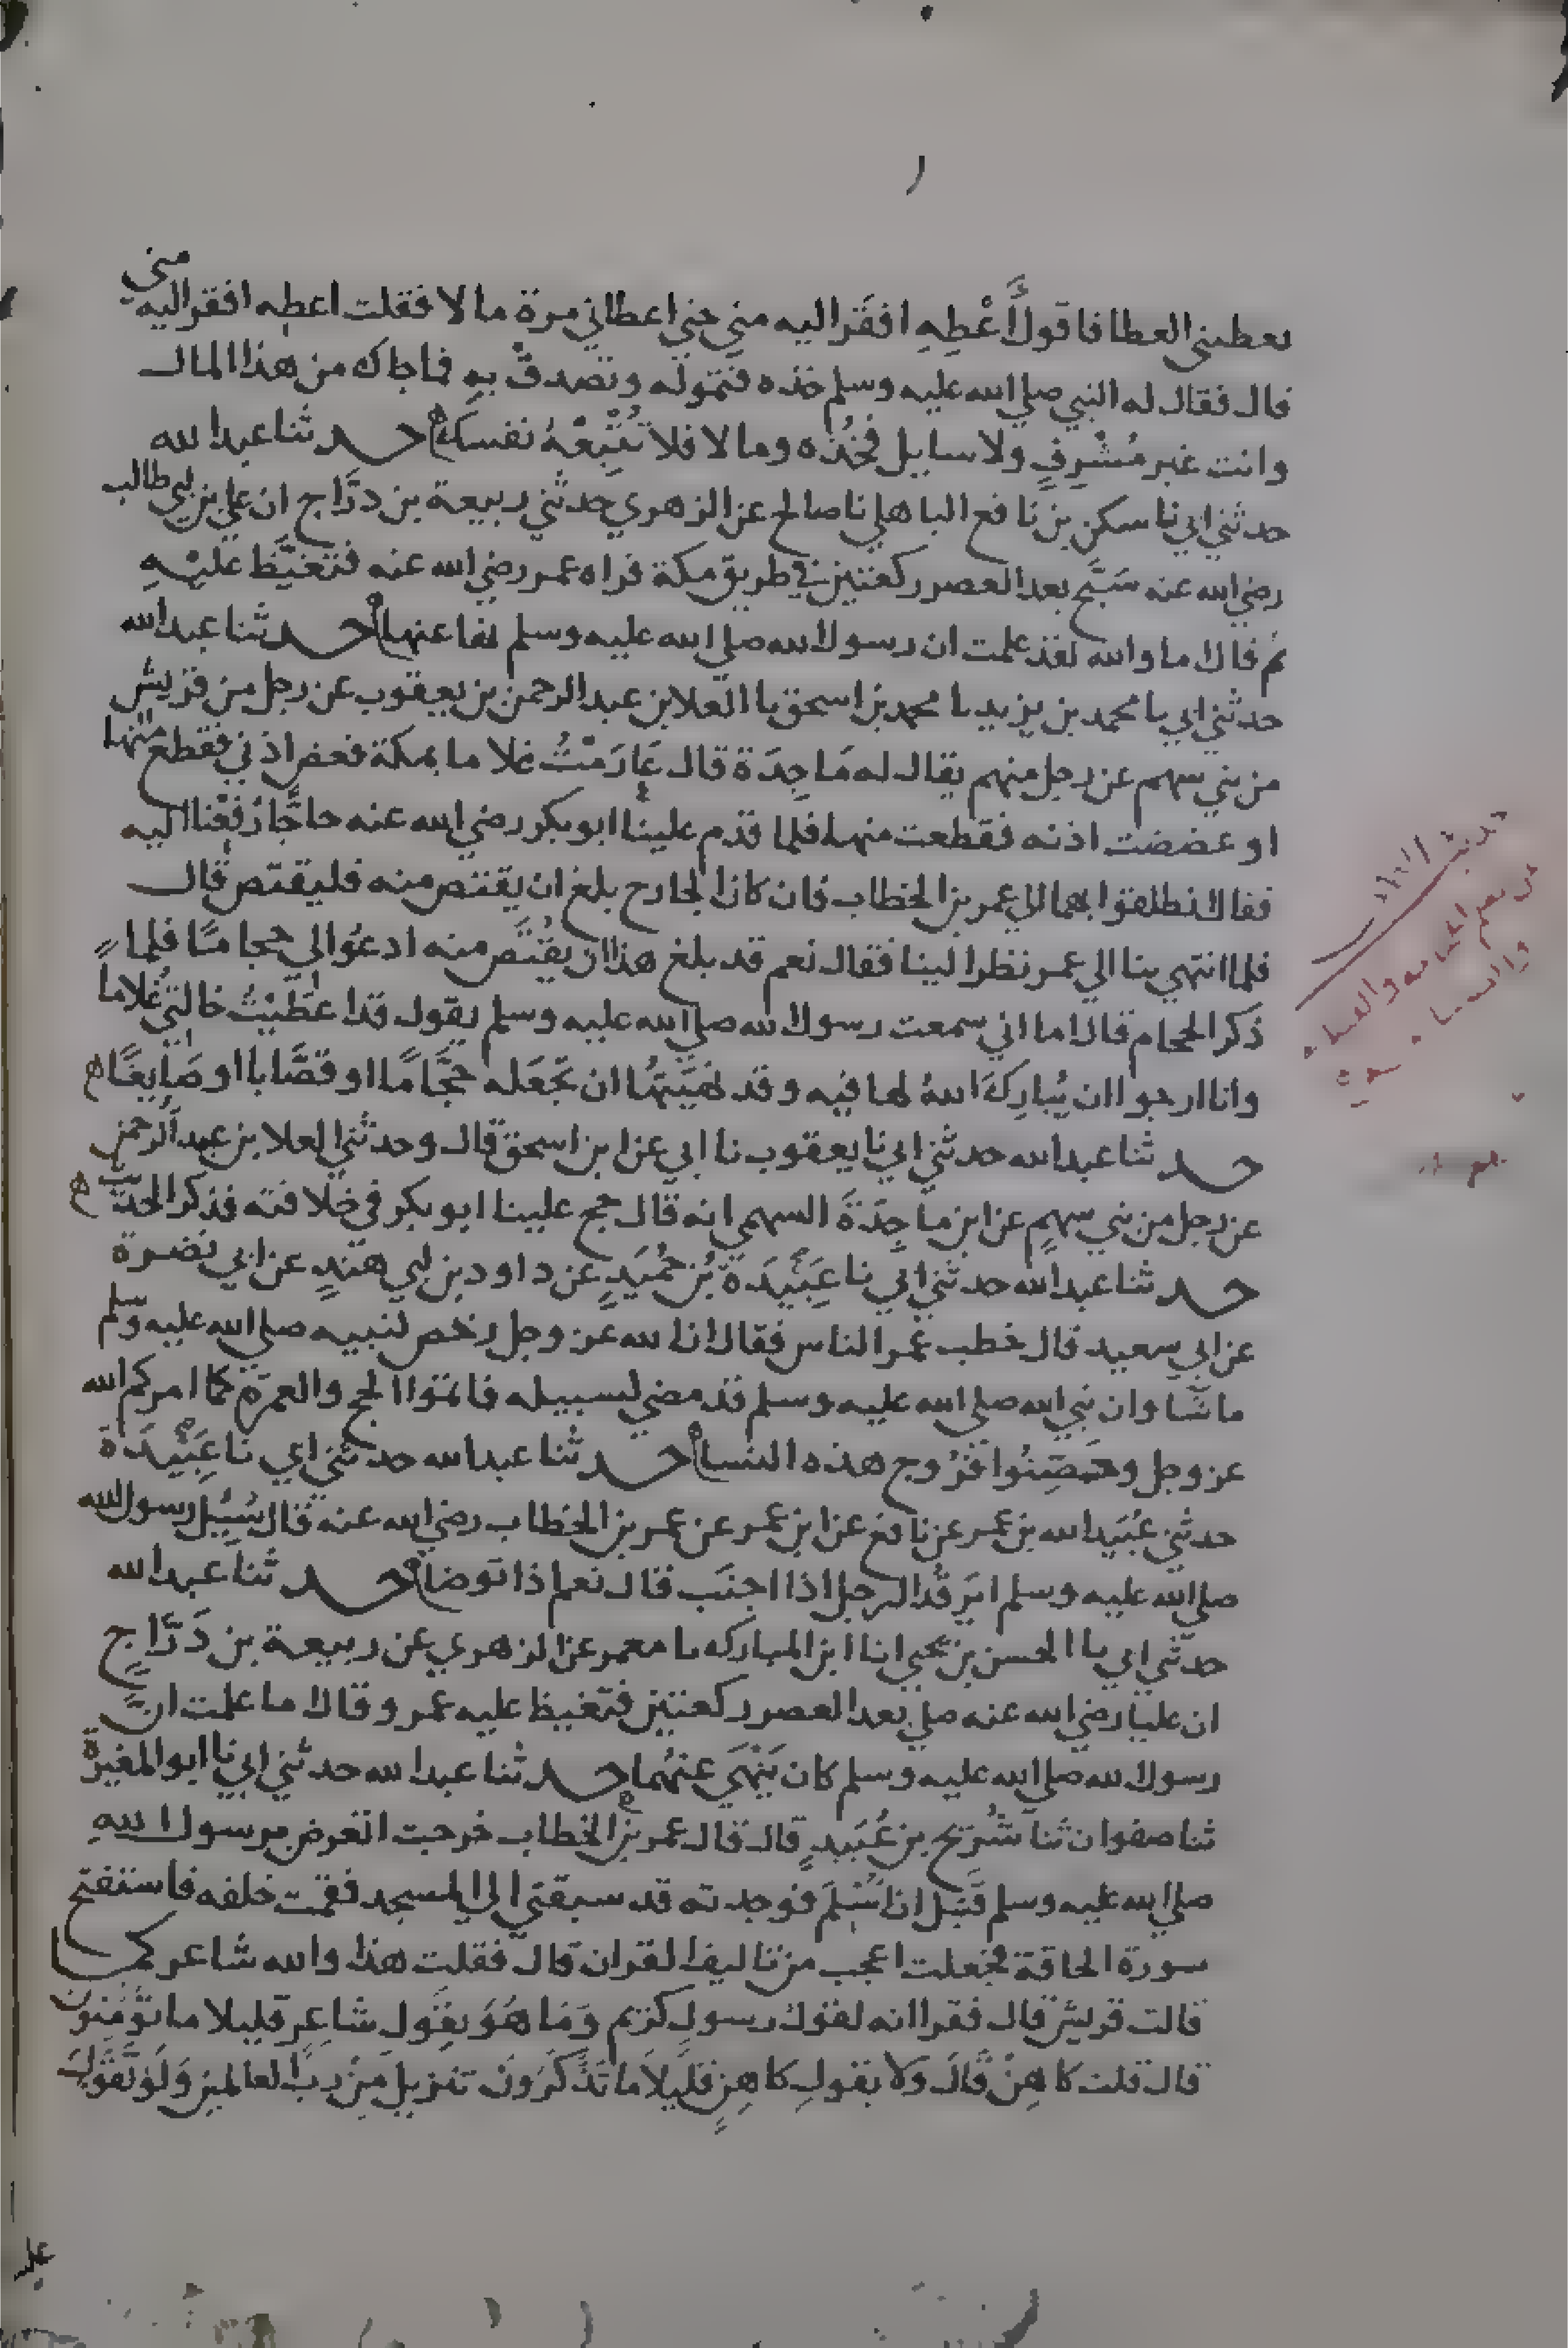 يعطيني العطا فاقول أَعْطِهِ افقَر اليه مني حتي اعطاني مرة مالا فقلت اعطه افقر اليه مني
قال فقال له النبي صلي الله عليه وسلم خذه فتموله وتصدق به فما جاك من هذا المال
وانت غير مُشْرِفٍ ولا سايل فخُذْه وما لا فلا تُتْبِعْهُ نفسك حدثنا عبد الله
حدثني ابي نا سكن بن نافع الباهلي نا صالح عن الزهري حدثني ربيعة بن درَّاج ان علي بن ابي طالب
رضي الله عنه سَبَّح بعد العصر ركعتين في طريق مكة فراه عمر رضي الله عنه فتغيَّظَ عليْهِ
ثم قال اما والله لقد علمت ان رسول الله صلي الله عليه وسلم نها عنها حدثنا عبد الله
حدثني ابي نا محمد بن يزيد نا محمد بن اسحق نا العلا بن عبد الرحمن بن يعقوب عن رجل من قريش
من بني سهم عن رجل منهم يقال له مَاجِدَة قال عَارَمْتُ غلاما بمكة فعض اذني فقطع منها
او عضضت اذنه فقطعت منها فلما قدم علينا ابو بكر رضي الله عنه حاجًّا رُفِعْنا اليه
فقال انطلقوا بهما الي عمر بن الخطاب فان كان الجارح بلغ ان يقتص منه فليقتص قال
فلما انتهي بنا الي عمر نظر الينا فقال نعم قد بلغ هذا ان يقُتَصَّ منه ادعُوا لي حجاما فلما
ذكر الحجام قال اما اني سمعت رسول الله صلي الله عليه وسلم يقول قد اعطَيْتُ خالتي غُلاماً
وانا ارجوا ان يُبارِكَ اللهُ لها فيه وقد نهَيْتُها ان تجْعَله حجَّامًا او قصَّابا او صَايغًا
حدثنا عبد الله حدثني ابي نا يعقوب نا ابي عن ابن اسحق قال وحدثني العلا بن عبد الرحمن
عن رجل من بني سهمٍ عن ابن ماجِدَةَ السهمي انه قال حج علينا ابو بكر في خلافته فذكر الحديث
حدثنا عبد الله حدثني ابي نا عَبِيْدَة بْن حُمَيدٍ عن داود بن ابي هندٍ عن ابي نضرة
عن ابي سعيد قال خطب عمر الناس فقال ان الله عز وجل رخص لنبيه صلي الله عليه وسلم
ما شا وان نبي الله صلي الله عليه وسلم قد مضي لسبيله فاتموا الحج والعمرة كما امركم الله
عز وجل وحَصِّنُوا فُرُوج هذه النسا حدثنا عبد الله حدثني ابي نا عَبِيْدَة
حدثني عُبَيد الله بن عمر عن نافع عن ابن عمر عن عمر بن الخطاب رضي الله عنه قال سُيِل رسول الله
صلي الله عليه وسلم ايرقُد الرجل اذا اجنَب قال نعم اذا توضا حدثنا عبد الله
حدثني ابي نا الحسن بن يحيي انا ابن المبارك نا معمر عن الزهري عن ربيعة بن دَرَّاجٍ
ان عليا رضي الله عنه صلي بعد العصر ركعتين فتغيظ عليه عمر وقال اما علمت انَّ
رسول الله صلي الله عليه وسلم كان يَنْهَي عنهُما حدثنا عبد الله حدثني ابي نا ابو المغيرة
ثنا صفوان ثنا شُرَيح بن عُبَيدٍ قال قال عمر بن الخطاب خرجت اتعرض رسول اللهِ
صلي الله عليه وسلم قبْل ان اُسْلِمَ فوجدته قد سبقني الي المسجد فقمت خلفه فاستفتح
سورة الحاقة فجعلت اعجب من تاليف القران قال فقلت هذا والله شاعر كما
قالت قريش قال فقرا انه لقول رسولٍ كريم وَمَا هُوَ بقَولِ شاعِرٍ قليلا ما تؤمنون
قال قلت كاهِنٌ قَالَ وَلا بقولِ كاهِنٍ قليلاً ما تَذَّكَّرُونَ تنزيل مِن رب العالمين وَلَوْ تقَوَّلَ